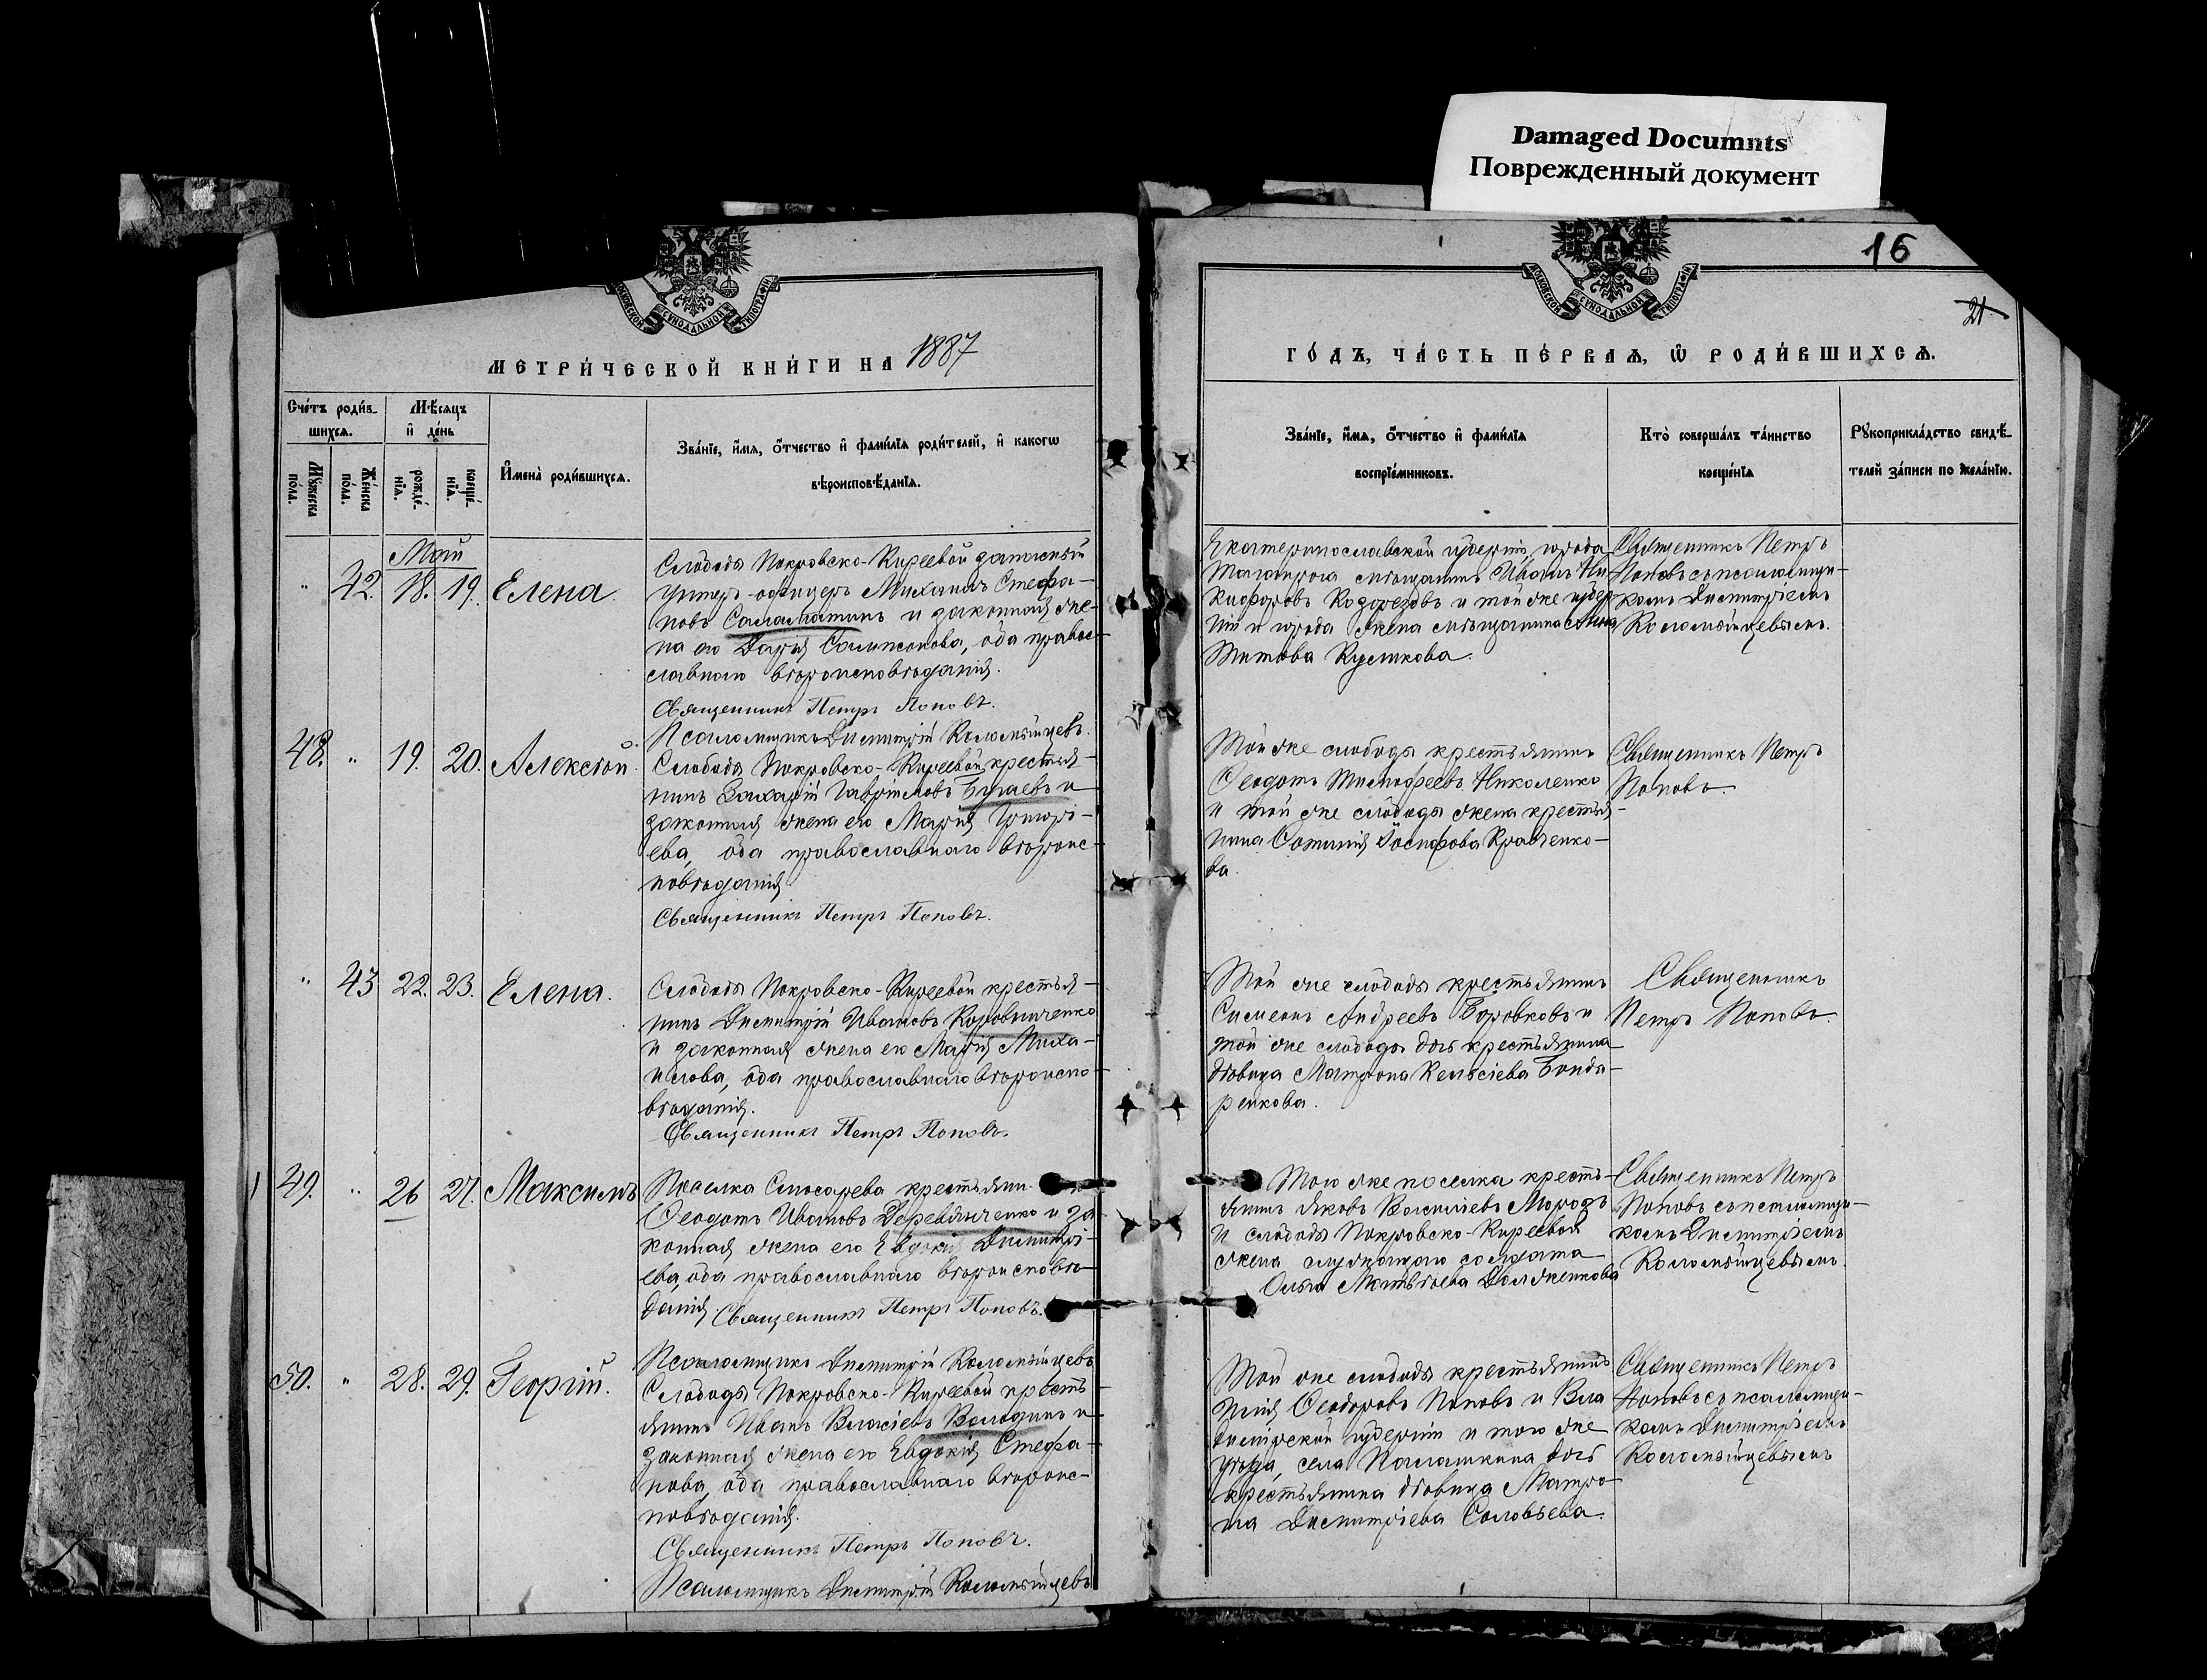 Damaged Documnts
Поврежденный документ
16
21
МОСКОВСКОЙ СѴНОДАЛЬНОЙ ТИПОГРАФІИ
МОСКОВСКОЙ СѴНОДАЛЬНОЙ ТИПОГРАФІИ
МЕТРИ́ЧЕСКОЙ КНИ́ГИ НА 1887
ГО́ДЪ, ЧА́СТЬ ПЕ́РВАѦ, Ѡ РОДИ́ВШИХСѦ.
Сче́тъ роди́в-
шихсѧ.
Мꙋжеска
по́ла.
Же́нска
по́ла.
Мѣ́сѧцъ
и҆ де́нь
рожде́-
нїѧ.
креще́-
нїѧ.
И҆мена̀ роди́вшихсѧ.
Зва́нїе, и҆́мѧ, ѻ҆́тчество и҆ фами́лїѧ роди́телей, и҆ какогѡ
вѣроисповѣ́данїѧ.
Зва́нїе, и҆́мѧ, ѻ҆́тчество и҆ фами́лїѧ
воспрїе́мниковъ.
Кто̀ соверша́лъ та́инство
креще́нїѧ
Рꙋкоприкла́дство свидѣ́-
телей за́писи по жела́нїю.
Май
" 42. 18. 19. Елена
Слободы Покровско-Киреевой запасный
унтеръ-офицеръ Михаилъ Стефа-
новъ Саламатинъ и законная же-
на его Дарья Сампсонова, оба правос-
лавнаго вѣроисповѣданія.
Священникъ Петръ Поповъ.
Псаломщикъ Димитрій Коломыйцевъ.
Екатеринославской губерніи, города
Таганрога мѣщанинъ Иванъ Ни-
кифоровъ Кодорезовъ и той же губер-
ніи и города жена мѣщанина Анна
Титова Кусткова.
Священникъ Петръ
Поповъ съ псаломщи-
комъ Димитріемъ
Коломыйцевымъ.
48. " 19. 20. Алексѣй.
Слободы Покровско-Киреевой крестья-
нинъ Захарій Гавриловъ Бугаевъ и
законная жена его Марія Григорі-
ева, оба православнаго вѣроис-
повѣданія
Священникъ Петръ Поповъ.
Той же слободы крестьянинъ
Ѳеодотъ Тимофеевъ Николенко
и той же слободы жена крестья-
нина Евфимія Іосифова Кравченко-
ва.
Священникъ Петръ
Поповъ.
" 43 22. 23. Елена.
Слободы Покровско-Киреевой крестья-
нинъ Димитрій Ивановъ Коровниченко
и законная жена его Марія Миха-
илова, оба православнаго вѣроиспо-
вѣданія.
Священникъ Петръ Поповъ.
Той же слободы крестьянинъ
Симеонъ Андреевъ Боровковъ и
той же слободы дочь крестьянина
дѣвица Матрона Кельсіева Бонда-
ренкова.
Священникъ
Петръ Поповъ.
49. " 26 27. Максимъ
Поселка Слюсарева крестьянин
Ѳеодотъ Ивановъ Деревянченко и за
конная жена его Евдокія Димитрі-
ева, оба православнаго вѣроисповѣ-
данія. Священникъ Петръ Поповъ.
Того же поселка кресть-
янинъ Яковъ Васильевъ Морозъ
и слободы Покровско-Киреевой
жена служащаго солдата
Ольга Матвѣева Долженкова
Священникъ Петръ
Поповъ съ псаломщи-
комъ Димитріемъ
Коломыйцевымъ.
Псаломщикъ Димитрій Коломыйцевъ
50. " 28. 29. Георгій.
Слободы Покровско-Киреевой кресть-
янинъ Иванъ Власіевъ Володинъ и
законная жена его Евдокія Стефа-
нова, оба православнаго вѣроис-
повѣданія.
Священникъ Петръ Поповъ.
Псаломщикъ Димитрій Коломыйцевъ
Той же слободы крестьянинъ
Ѳеодоровъ Поповъ и Вла
димірской губерніи и того же
уѣзда, села Палашкина дочь
крестьянина дѣвица Матро-
на Димитріева Соловьева.
Священникъ Петръ
Поповъ съ псаломщи-
комъ Димитріемъ
Коломыйцевымъ